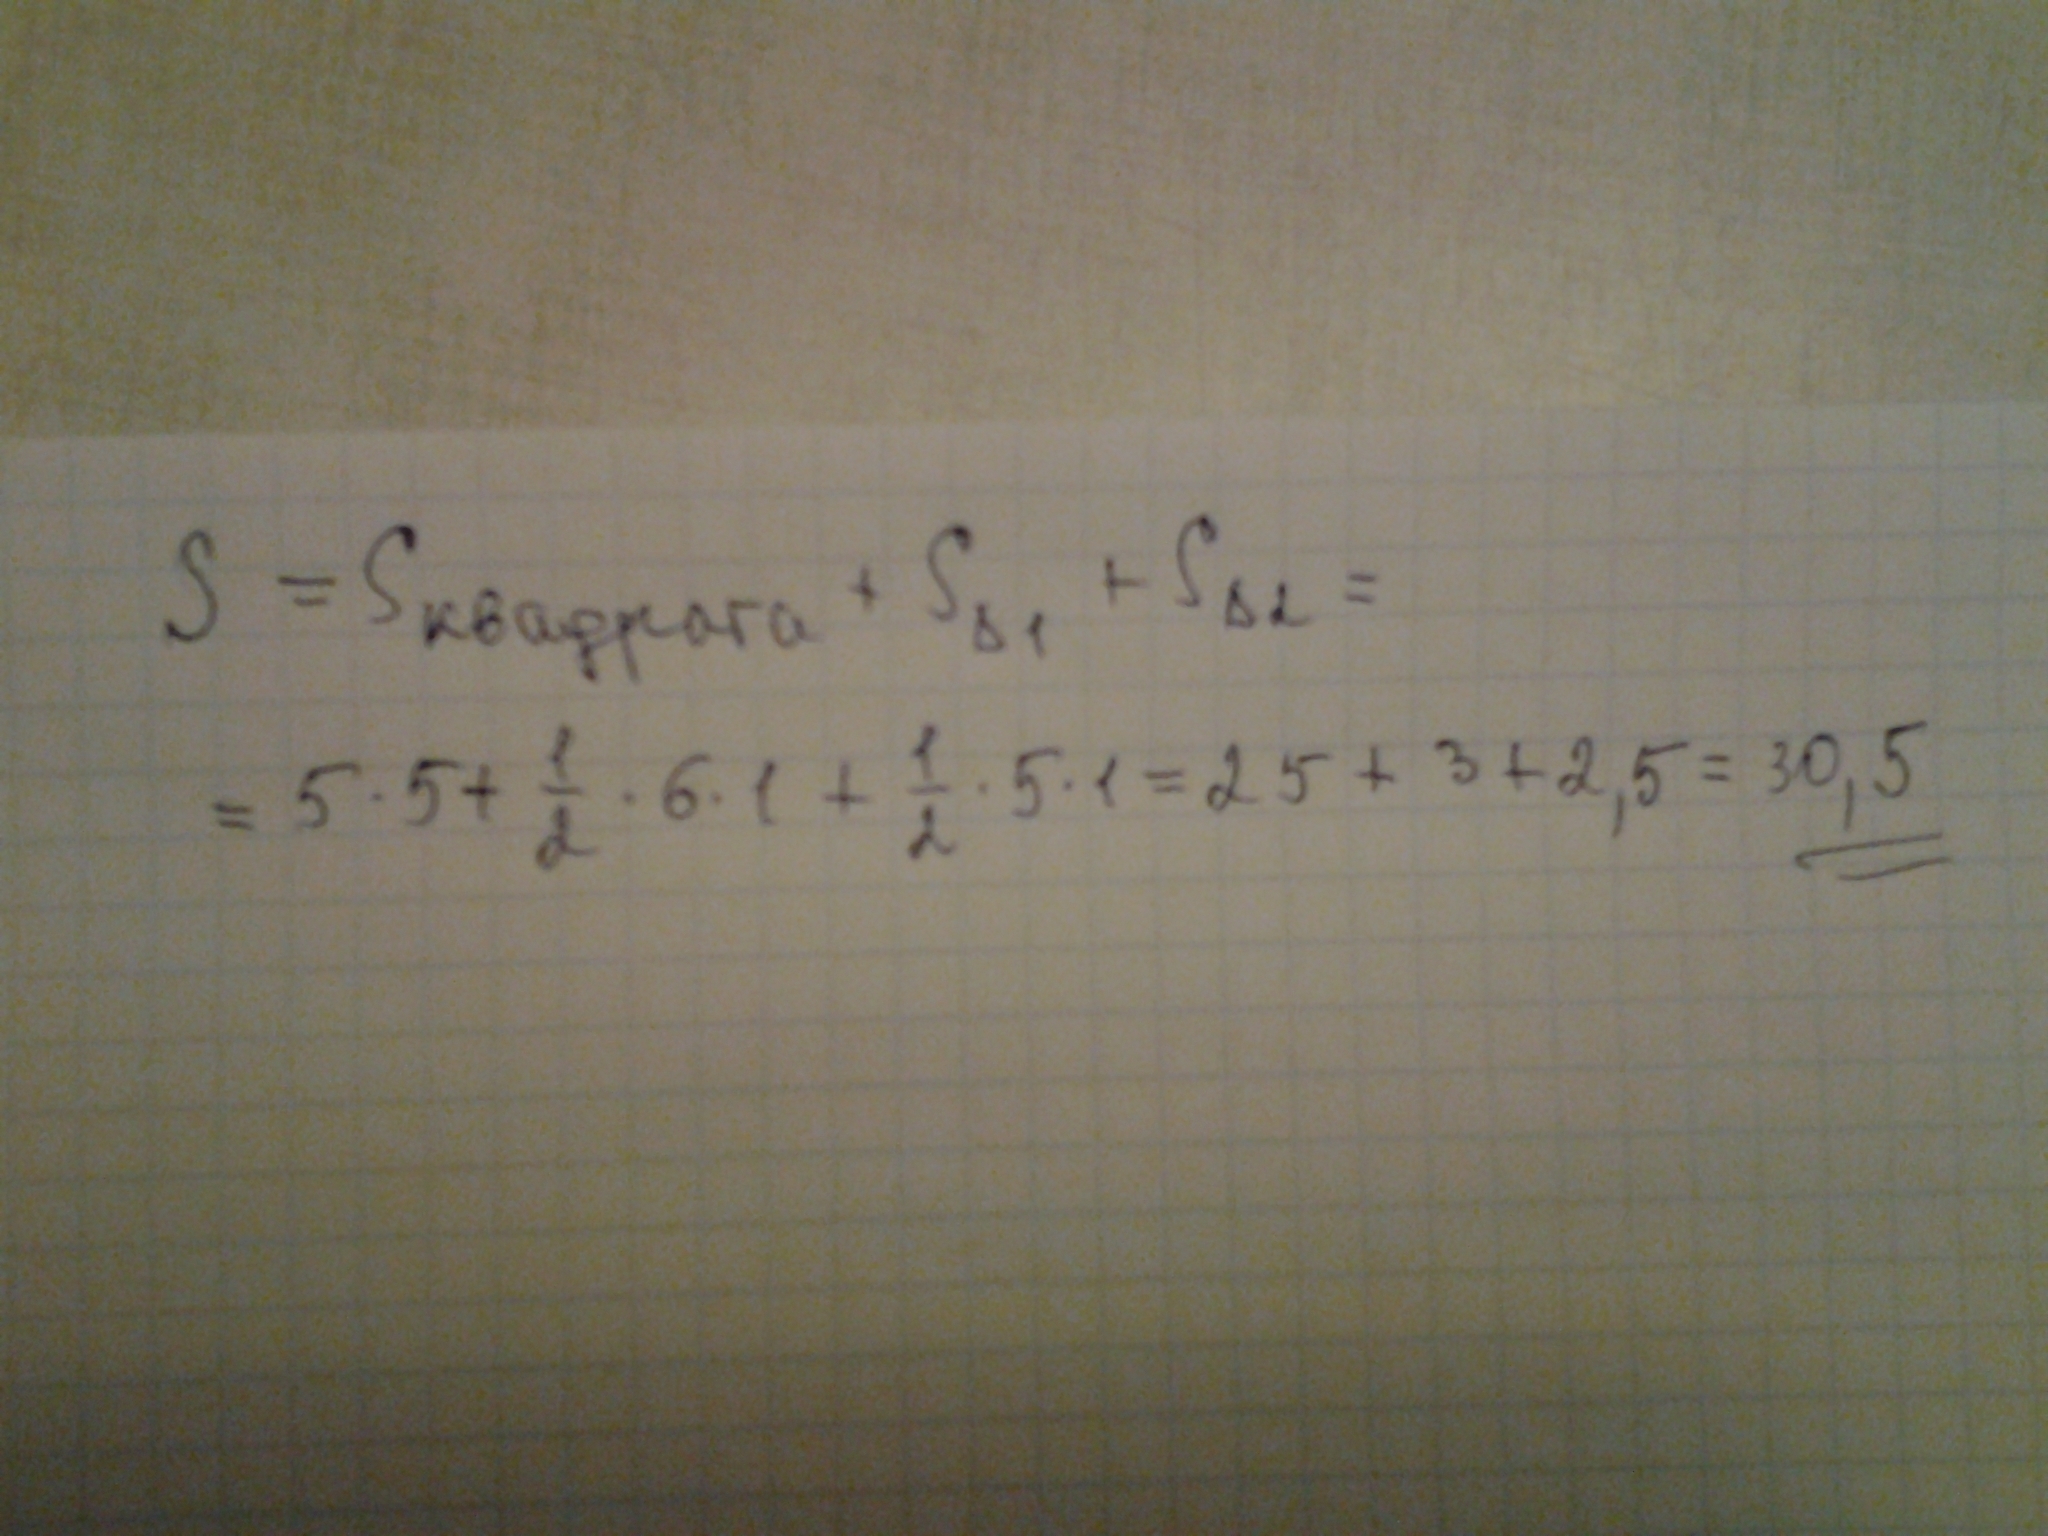 S = Sквадрата + SΔ1 + SΔ2 =
= 5·5+ 1/2 ·6·1 + 1/2 ·5·1 = 25 + 3+2,5= 30,5